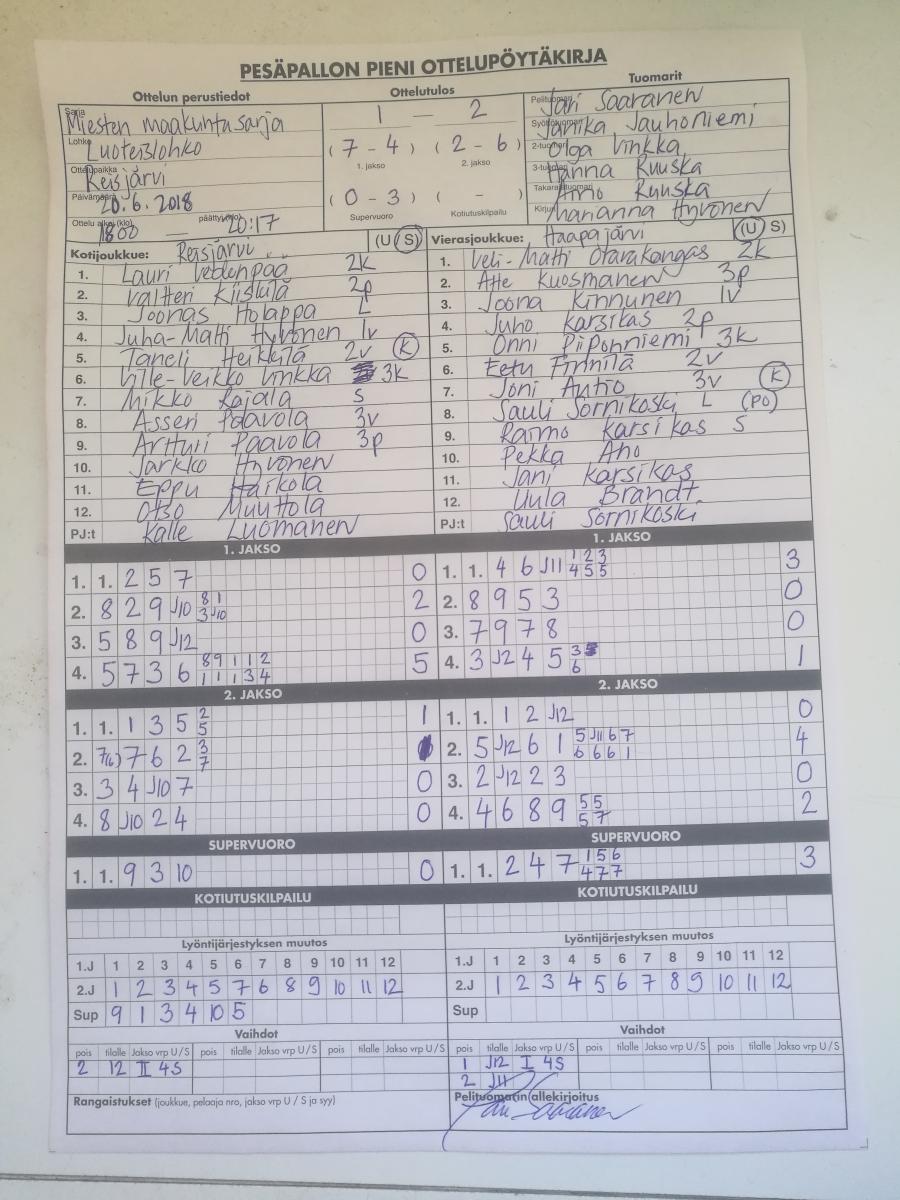 PESÄPALLON PIENI OTTELUPÖYTÄKIRJA
Ottelun perustiedot
Ottelutulos
Tuomarit
Sarja
Miesten maakuntasarja
1 — 2
Pelituomari
Jari Saaranen
Lohko
Luoteislohko
(7 - 4) (2 - 6)
Syöttötuomari
Janika Jauhoniemi
1. jakso
2. jakso
2-tuomari
Olga Vinkka
Ottelupaikka
Reisjärvi
3-tuomari
Hanna Ruuska
Päivämäärä
20.6.2018
(0 - 3) ( - )
Takarajatuomari
Aino Ruuska
Ottelu alkoi (klo)
1800 —
päättyi (klo)
20:17
Supervuoro
Kotiutuskilpailu
Kirjuri
Marianna Hyvönen
Kotijoukkue: Reisjärvi (U/S)
1. Lauri Vedenpää 2k
2. Valtteri Kiiskilä 2p
3. Joonas Holappa L
4. Juha-Matti Hyvönen 1v
5. Taneli Heikkilä 2v (K)
6. Ville-Veikko Vinkka 3k
7. Mikko Rajala S
8. Asseri Paavola 3v
9. Artturi Paavola 3p
10. Jarkko Hyvönen
11. Eppu Haikola
12. Otso Muuttola
PJ:t Kalle Luomanen
Vierasjoukkue: Haapajärvi (U/S)
1. Veli-Matti Otarakangas 2k
2. Atte Kuosmanen 3p
3. Joona Kinnunen 1v
4. Juho Karsikas 2p
5. Onni Piponniemi 3k
6. Eetu Finnilä 2v
7. Joni Autio 3v (K)
8. Sauli Sornikoski L (PO)
9. Raimo Karsikas S
10. Pekka Aho
11. Jani Karsikas
12. Uula Brandt
PJ:t Sauli Sornikoski
1. JAKSO
1. 1. 2 5 7 0
2. 8 2 9 J10 8 1 2
3 J10
3. 5 8 9 J12 0
4. 5 7 3 6 8 9 1 1 2 5
1 1 1 3 4
1. JAKSO
1. 1. 4 6 J11 1 2 3 3
4 5 5
2. 8 9 5 3 0
3. 7 9 7 8 0
4. 3 J2 4 5 3 1
6
2. JAKSO
1. 1. 1 3 5 2 1
5
2. 7(6) 7 6 2 3
7
3. 3 4 J10 7 0
4. 8 J10 2 4 0
2. JAKSO
1. 1. 1 2 J12 0
2. 5 J12 6 1 5 J11 6 7 4
6 6 6 1
3. 2 J12 2 3 0
4. 4 6 8 9 5 5 2
5 7
SUPERVUORO
1. 1. 9 3 10 0
SUPERVUORO
1. 1. 2 4 7 1 5 6 3
4 7 7
KOTIUTUSKILPAILU
KOTIUTUSKILPAILU
Lyöntijärjestyksen muutos
1.J 1 2 3 4 5 6 7 8 9 10 11 12
2.J 1 2 3 4 5 7 6 8 9 10 11 12
Sup 9 1 3 4 10 5
Lyöntijärjestyksen muutos
1.J 1 2 3 4 5 6 7 8 9 10 11 12
2.J 1 2 3 4 5 6 7 8 9 10 11 12
Sup
Vaihdot
pois tilalle Jakso vrp U/S pois tilalle Jakso vrp U/S pois tilalle Jakso vrp U/S
2 12 II 4S
Vaihdot
pois tilalle Jakso vrp U/S pois tilalle Jakso vrp U/S pois tilalle Jakso vrp U/S
1 J12 I 4S
2 J11
Rangaistukset (joukkue, pelaaja nro, jakso vrp U / S ja syy)
Pelituomarin allekirjoitus
Jari Saaranen